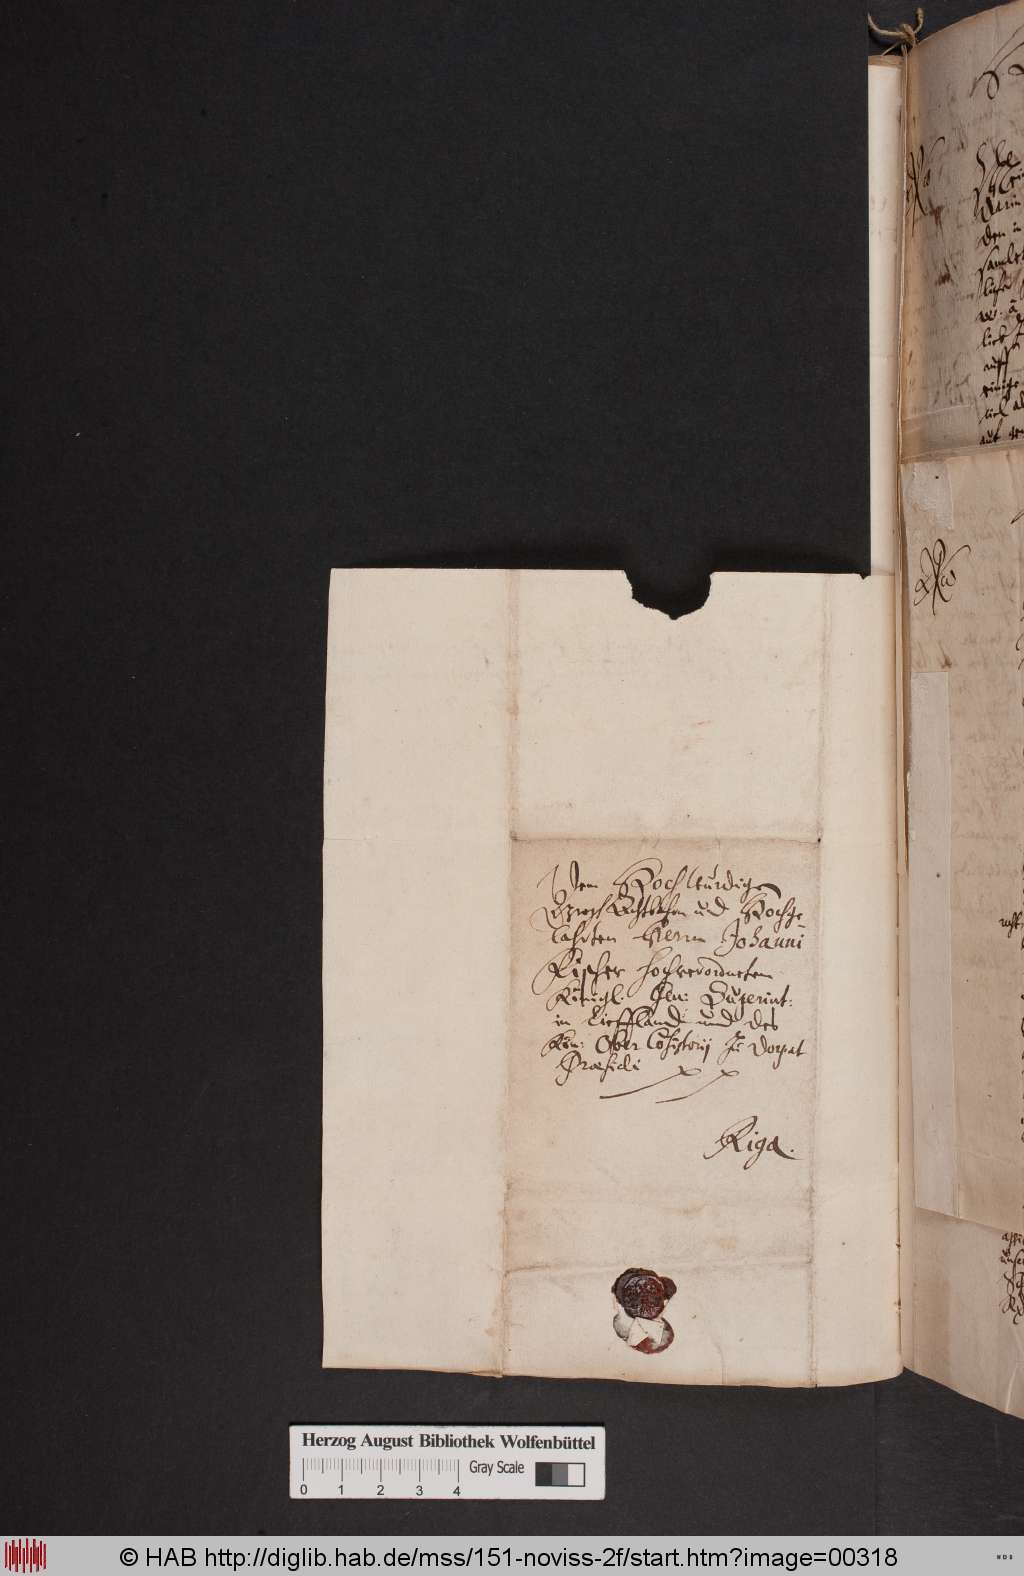 Dem HochWürdigen
Groß Achtbahren und Hochge-
lahrten Herrn Johanni
Fischer hochverordneten
Königl. Gen: Superint:
in Lieffland und des
Kön: Ober Cosistorij zu Dorpat
Præsidi
Riga.
Herzog August Bibliothek Wolfenbüttel
0 1 2 3 4
Gray Scale
© HAB http://diglib.hab.de/mss/151-noviss-2f/start.htm?image=00318